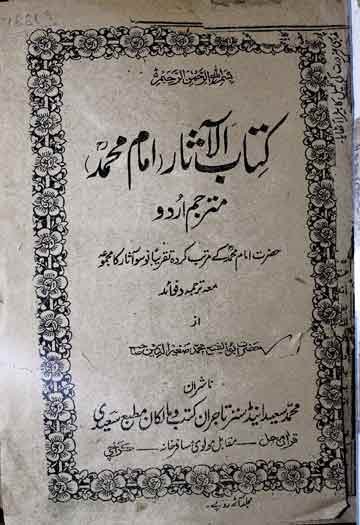 بسم الله الرحمن الرحیم
کتاب الآثار (امام محمدؒ)
مترجم اردو
حضرت امام محمدؒ کے مرتب کردہ تقریباً نو سو آثار کا مجموعہ
معہ ترجمہ و فوائد
از
ابو الفتح محمد صغیر الدین
ناشران
محمد سعید اینڈ سنز تاجران کتب و مالکان مطبع سعیدی
قرآن محل ــ مقابل مولوی مسافر خانہ ــ کراچی
روپے